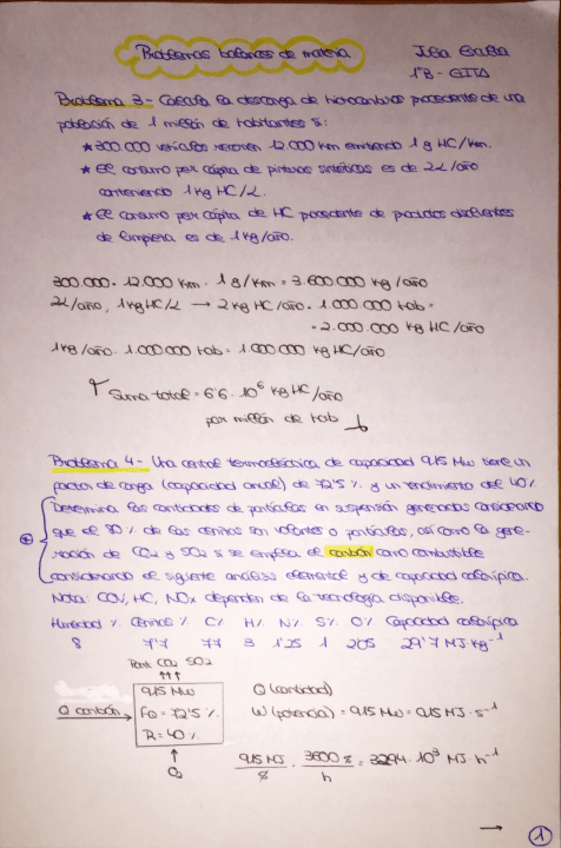 Problemas balances de materia
1ºB - GITA
Problema 3- Calcula la descarga de hidrocarburos procedente de una
población de 1 millón de habitantes si:
★ 300.000 vehículos recorren 12.000 km emitiendo 1 g HC/km.
★ El consumo per cápita de pinturas sintéticas es de 2L/año
conteniendo 1kg HC/L.
★ El consumo per cápita de HC procedente de productos disolventes
de limpieza es de 1kg/año.
300.000 · 12.000 km · 1 g/km = 3.600.000 kg/año
2L/año, 1kg HC/L → 2kg HC/año · 1.000.000 hab =
= 2.000.000 kg HC/año
1kg/año · 1.000.000 hab = 1.000.000 kg HC/año
Suma total = 6'6 · 10⁶ kg HC/año
por millón de hab
Problema 4- Una central termoeléctrica de capacidad 915 Mw tiene un
factor de carga (capacidad anual) de 72'5 % y un rendimiento del 40%.
Determina las cantidades de partículas en suspensión generadas considerando
que el 80% de las cenizas son volantes o partículas, así como la gene-
ración de CO₂ y SO₂ si se emplea el carbón como combustible
considerando el siguiente análisis elemental y de capacidad calorífica.
Nota: COV, HC, NOx dependen de la tecnología disponible.
Humedad % Cenizas % C% H% N% S% O% Capacidad calorífica
8 7'7 77 3 1'25 1 2'05 29'7 MJ·kg⁻¹
Part CO₂ SO₂
↑↑↑
915 Mw Q (cantidad)
Q carbón → FQ = 72'5 % W (potencia) = 915 Mw = 915 MJ · s⁻¹
R = 40 %
↑
O₂ 915 MJ/s · 3600 s/h = 3294 · 10³ MJ · h⁻¹
→ 1